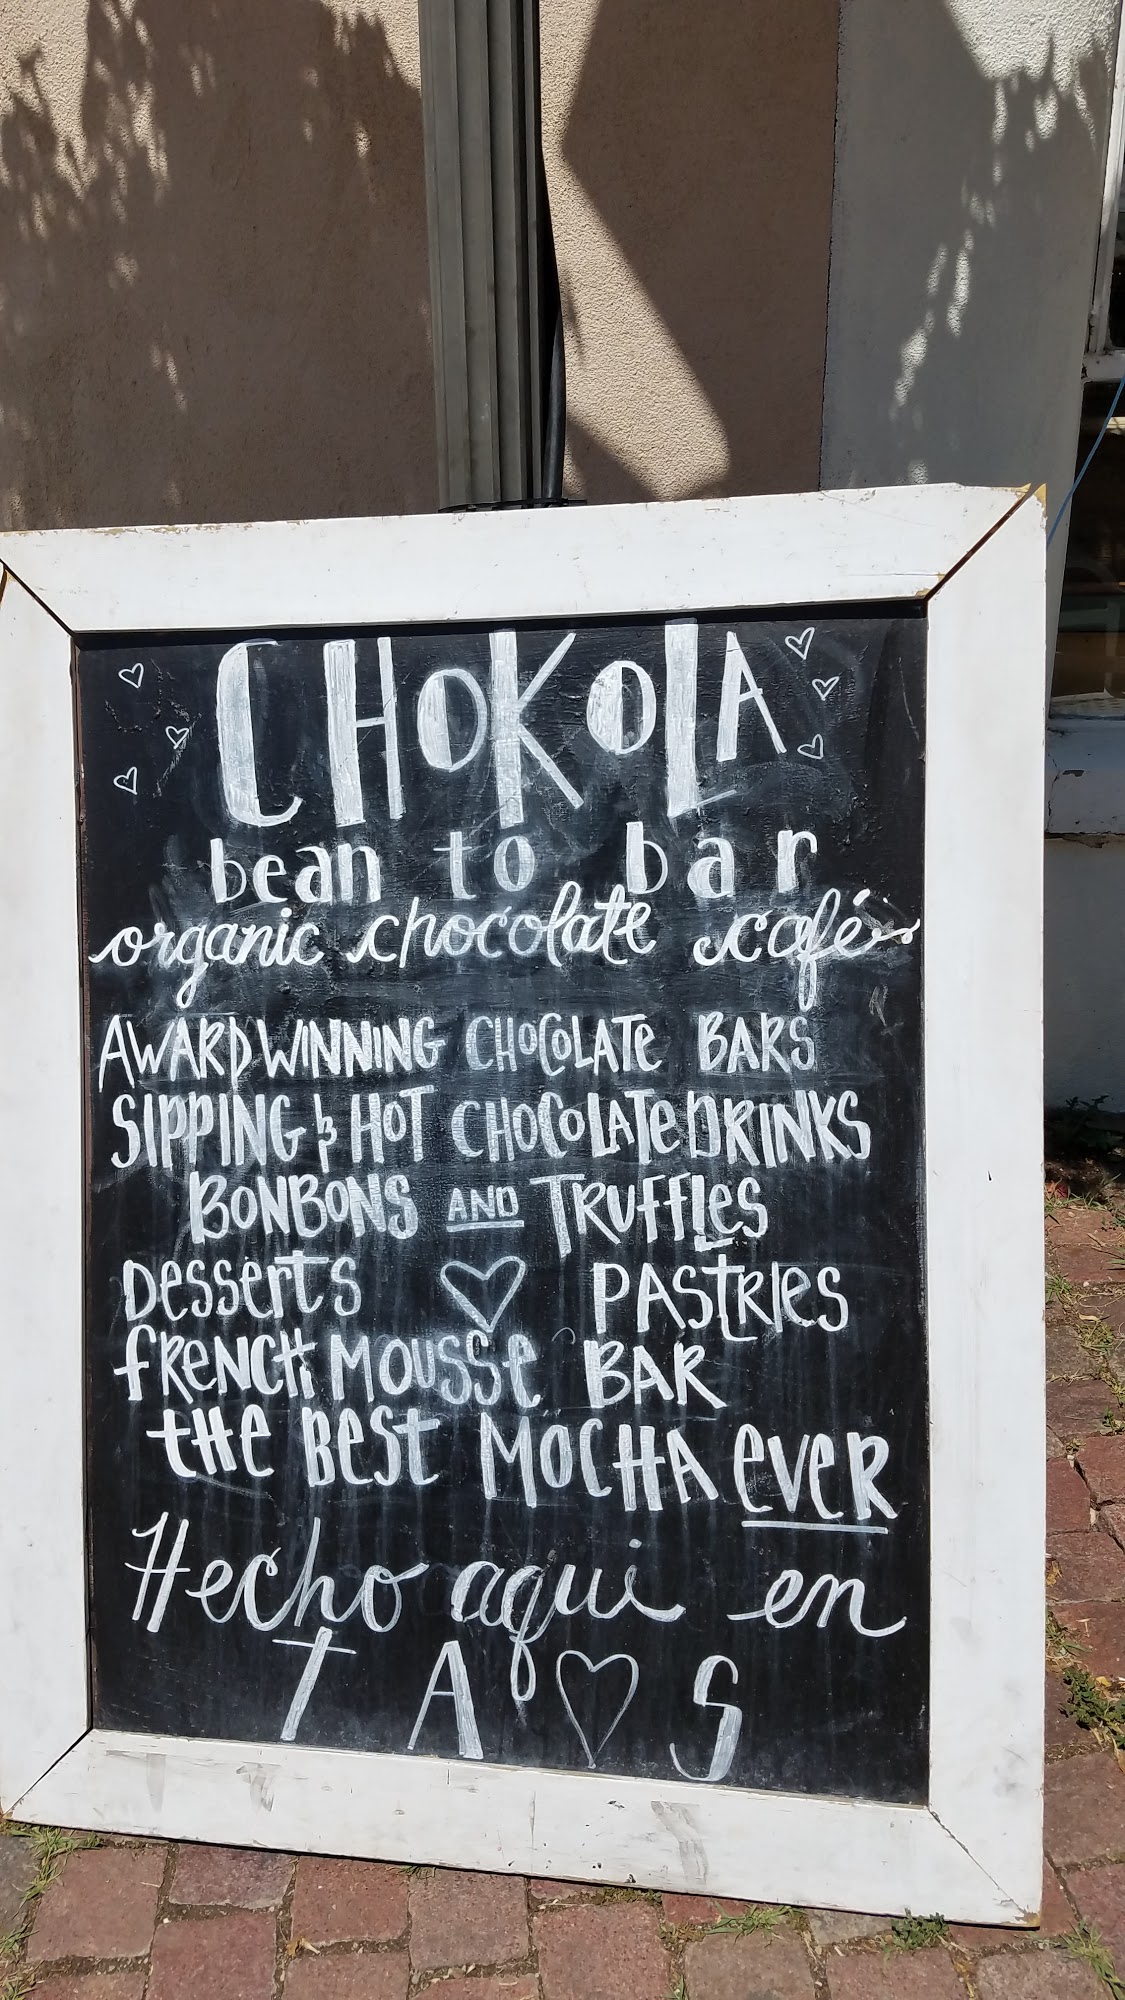 CHOKOLA
bean to bar
organic chocolate café
AWARD WINNING CHOCOLATE BARS
SIPPING & HOT CHOCOLATE DRINKS
BONBONS AND TRUFFLES
DESSERTS ♡ PASTRIES
FRENCH MOUSSE BAR
THE BEST MOCHA EVER
Hecho aqui en
TA♡S